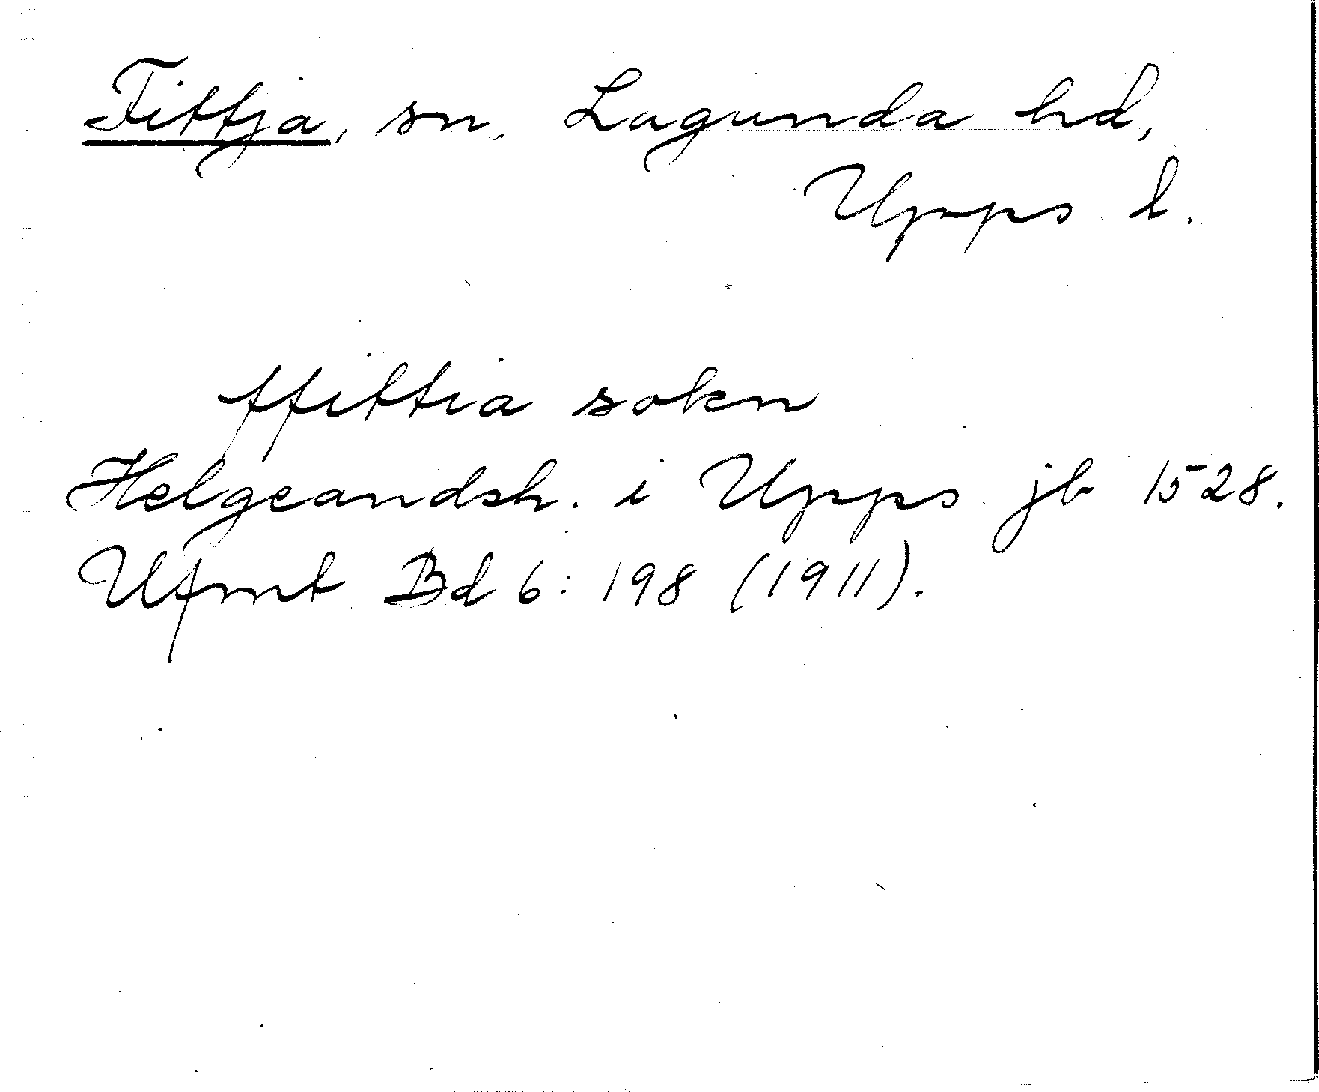 Fittja, sn, Lagunda hd,
Upps l.
ffittia sokn
Helgeandsh. i Upps jb 1528.
Ufmt Bd 6: 198 (1911).